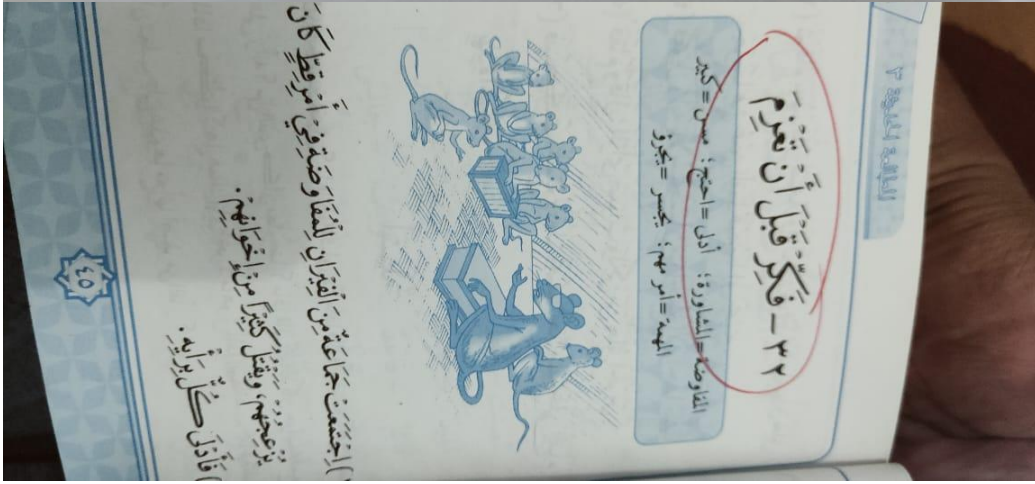 المطالعة العربية ٣
٣٢- فَكِّرْ قَبْلَ أَنْ تَعْزِمَ
المفاوضة=المشاورة؛ أدلى=احتج؛ مسن=كبير
المهمة=أمر مهم؛ يجسر=يجرؤ
) اِجْتَمَعَتْ جَمَاعَةٌ مِنَ الْفِيْرَانِ لِلْمُفَاوَضَةِ فِيْ أَمْرِ قِطٍّ كَانَ
يُزْعِجُهُمْ، وَيَقْتُلُ كَثِيْرًا مِنْ إِخْوَانِهِمْ.
) فَأَدْلَى كُلٌّ بِرَأْيِهِ.
٤٥